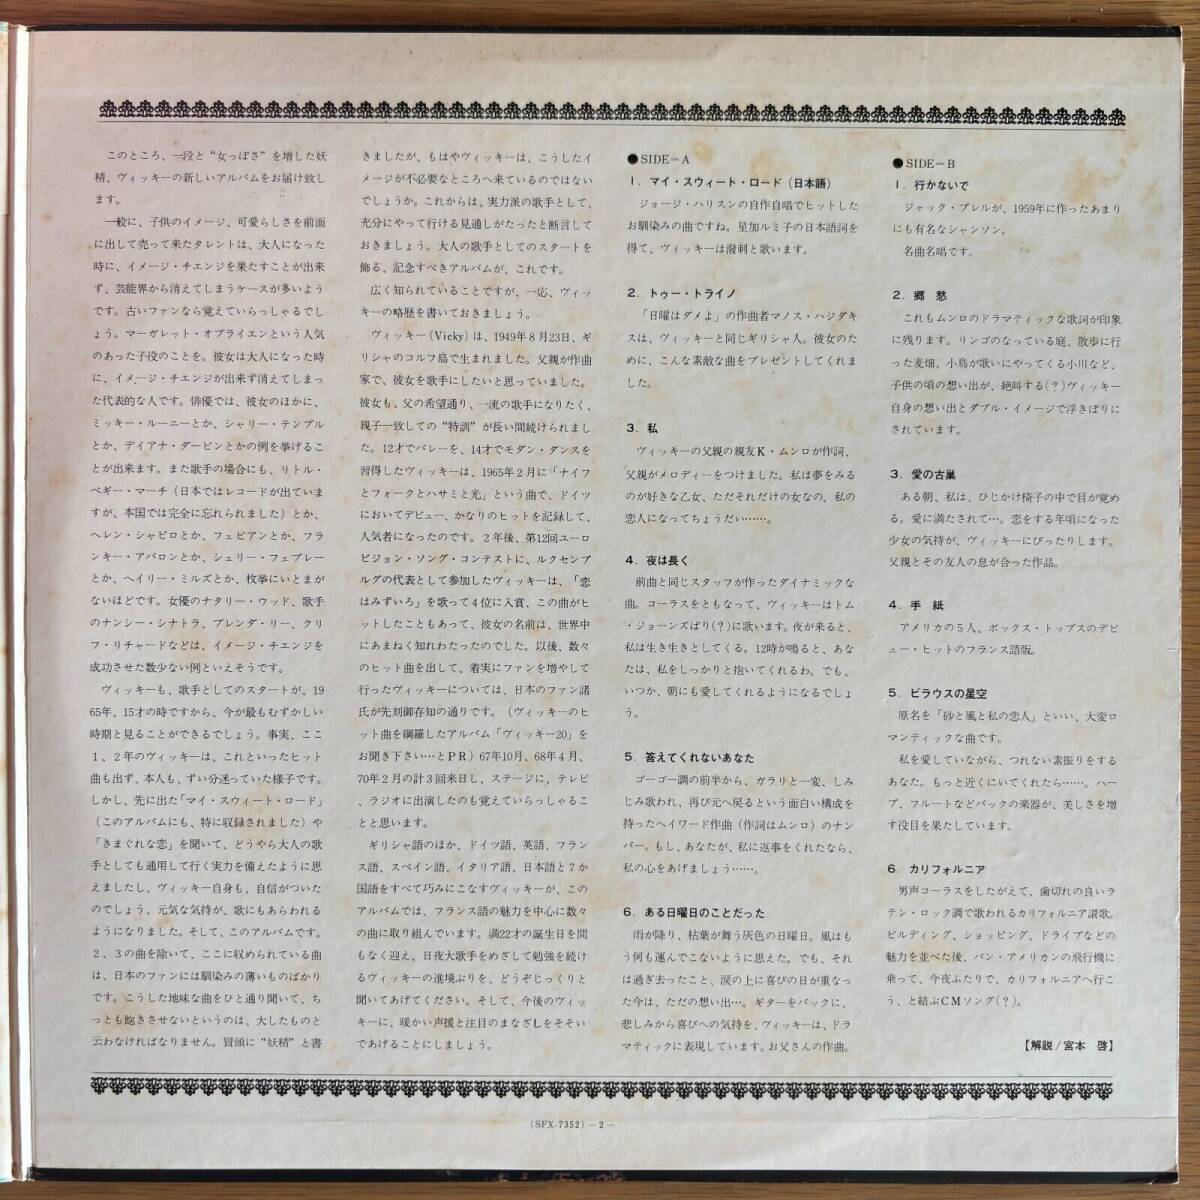 このところ、一段と“女っぽさ”を増した妖
精、ヴィッキーの新しいアルバムをお届け致し
ます。
一般に、子供のイメージ、可愛らしさを前面
に出して売って来たタレントは、大人になった
時に、イメージ・チエンジを果たすことが出来
ず、芸能界から消えてしまうケースが多いよう
です。古いファンなら覚えていらっしゃるでし
ょう。マーガレット・オブライエンという人気
のあった子役のことを。彼女は大人になった時
に、イメージ・チエンジが出来ず消えてしまっ
た代表的な人です。俳優では、彼女のほかに、
ミッキー・ルーニーとか、シャリー・テンプル
とか、デイアナ・ダービンとかの例を挙げるこ
とが出来ます。また歌手の場合にも、リトル・
ペギー・マーチ（日本ではレコードが出ていま
すが、本国では完全に忘れられました）とか、
ヘレン・シャピロとか、フェビアンとか、フラ
ンキー・アバロンとか、シェリー・フェブレー
とか、ヘイリー・ミルズとか、枚挙にいとまが
ないほどです。女優のナタリー・ウッド、歌手
のナンシー・シナトラ、ブレンダ・リー、クリ
フ・リチャードなどは、イメージ・チエンジを
成功させた数少ない例といえそうです。
ヴィッキーも、歌手としてのスタートが、19
65年、15才の時ですから、今が最もむずかしい
時期と見ることができるでしょう。事実、ここ
1、2年のヴィッキーは、これといったヒット
曲も出ず、本人も、ずい分迷っていた様子です。
しかし、先に出た「マイ・スウィート・ロード」
（このアルバムにも、特に収録されました）や
「きまぐれな恋」を聞いて、どうやら大人の歌
手としても通用して行く実力を備えたように思
えましたし、ヴィッキー自身も、自信がついた
のでしょう、元気な気持が、歌にもあらわれる
ようになりました。そして、このアルバムです。
2、3の曲を除いて、ここに収められている曲
は、日本のファンには馴染みの薄いものばかり
です。こうした地味な曲をひと通り聞いて、ち
っとも飽きさせないというのは、大したものと
云わなければなりません。冒頭に“妖精”と書
きましたが、もはやヴィッキーは、こうしたイ
メージが不必要なところへ来ているのではない
でしょうか。これからは、実力派の歌手として、
充分にやって行ける見通しがたったと断言して
おきましょう。大人の歌手としてのスタートを
飾る、記念すべきアルバムが、これです。
広く知られていることですが、一応、ヴィッ
キーの略歴を書いておきましょう。
ヴィッキー(Vicky)は、1949年8月23日、ギ
リシャのコルフ島で生まれました。父親が作曲
家で、彼女を歌手にしたいと思っていました。
彼女も、父の希望通り、一流の歌手になりたく、
親子一致しての“特訓”が長い間続けられまし
た。12才でバレーを、14才でモダン・ダンスを
習得したヴィッキーは、1965年2月に「ナイフ
とフォークとハサミと光」という曲で、ドイツ
においてデビュー、かなりのヒットを記録して、
人気者になったのです。2年後、第12回ユーロ
ビジョン・ソング・コンテストに、ルクセンブ
ルグの代表として参加したヴィッキーは、「恋
はみずいろ」を歌って4位に入賞、この曲がヒ
ットしたこともあって、彼女の名前は、世界中
にあまねく知れわたったのでした。以後、数々
のヒット曲を出して、着実にファンを増やして
行ったヴィッキーについては、日本のファン諸
氏が先刻御存知の通りです。（ヴィッキーのヒ
ット曲を綱羅したアルバム「ヴィッキー20」を
お聞き下さい…とPR）67年10月、68年4月、
70年2月の計3回来日し、ステージに、テレビ
、ラジオに出演したのも覚えていらっしゃるこ
とと思います。
ギリシャ語のほか、ドイツ語、英語、フラン
ス語、スペイン語、イタリア語、日本語と7か
国語をすべて巧みにこなすヴィッキーが、この
アルバムでは、フランス語の魅力を中心に数々
の曲に取り組んでいます。満22才の誕生日を間
もなく迎え、日夜大歌手をめざして勉強を続け
るヴィッキーの進境ぶりを、どうぞじっくりと
聞いてあげてください。そして、今後のヴィッ
キーに、暖かい声援と注目のまなざしをそそい
であげることにしましょう。
●SIDE=A
1. マイ・スウィート・ロード（日本語）
ジョージ・ハリスンの自作自唱でヒットした
お馴染みの曲ですね。星加ルミ子の日本語詞を
得て、ヴィッキーは潑剌と歌います。
2. トゥー・トライノ
「日曜はダメよ」の作曲者マノス・ハジダキ
スは、ヴィッキーと同じギリシャ人。彼女のた
めに、こんな素敵な曲をプレゼントしてくれま
した。
3. 私
ヴィッキーの父親の親友K・ムンロが作詞、
父親がメロディーをつけました。私は夢をみる
のが好きな乙女、ただそれだけの女なの、私の
恋人になってちょうだい……。
4. 夜は長く
前曲と同じスタッフが作ったダイナミックな
曲。コーラスをともなって、ヴィッキーはトム
・ジョーンズばり(？)に歌います。夜が来ると、
私は生き生きとしてくる。12時が鳴ると、あな
たは、私をしっかりと抱いてくれるわ。でも、
いつか、朝にも愛してくれるようになるでしょ
う。
5. 答えてくれないあなた
ゴーゴー調の前半から、ガラリと一変、しみ
じみ歌われ、再び元へ戻るという面白い構成を
持ったヘイワード作曲（作詞はムンロ）のナン
バー。もし、あなたが、私に返事をくれたなら、
私の心をあげましょう……。
6. ある日曜日のことだった
雨が降り、枯葉が舞う灰色の日曜日。風はも
う何も運んでこないように思えた。でも、それ
は過ぎ去ったこと、涙の上に喜びの日が重なっ
た今は、ただの想い出…。ギターをバックに、
悲しみから喜びへの気持を、ヴィッキーは、ドラ
マティックに表現しています。お父さんの作曲。
●SIDE=B
1. 行かないで
ジャック・ブレルが、1959年に作ったあまり
にも有名なシャンソン。
名曲名唱です。
2. 郷愁
これもムンロのドラマティックな歌詞が印象
に残ります。リンゴのなっている庭、散歩に行
った麦畑、小鳥が歌いにやってくる小川など、
子供の頃の想い出が、絶叫する(？)ヴィッキー
自身の想い出とダブル・イメージで浮きぼりに
されています。
3. 愛の古巣
ある朝、私は、ひじかけ椅子の中で目が覚め
る。愛に満たされて…。恋をする年頃になった
少女の気持が、ヴィッキーにぴったりします。
父親とその友人の息が合った作品。
4. 手紙
アメリカの5人、ボックス・トップスのデビ
ュー・ヒットのフランス語版。
5. ピラウスの星空
原名を「砂と風と私の恋人」といい、大変ロ
マンティックな曲です。
私を愛していながら、つれない素振りをする
あなた。もっと近くにいてくれたら……。ハー
プ、フルートなどバックの楽器が、美しさを増
す役目を果たしています。
6. カリフォルニア
男声コーラスをしたがえて、歯切れの良いラ
テン・ロック調で歌われるカリフォルニア讃歌。
ビルディング、ショッピング、ドライブなどの
魅力を並べた後、パン・アメリカンの飛行機に
乗って、今夜ふたりで、カリフォルニアへ行こ
う、と結ぶCMソング(？)。
【解説／宮本　啓】
(SFX-7352) －2－